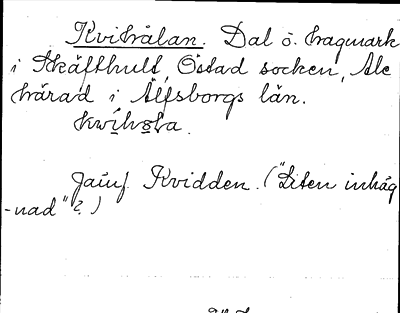 Kvihålan. Dal o. hagmark
i Skäfthult, Östad socken, Ale
härad i Älfsborgs län.
kwihola.
Jämf. Kvidden. ("Liten inhäg
-nad"?)